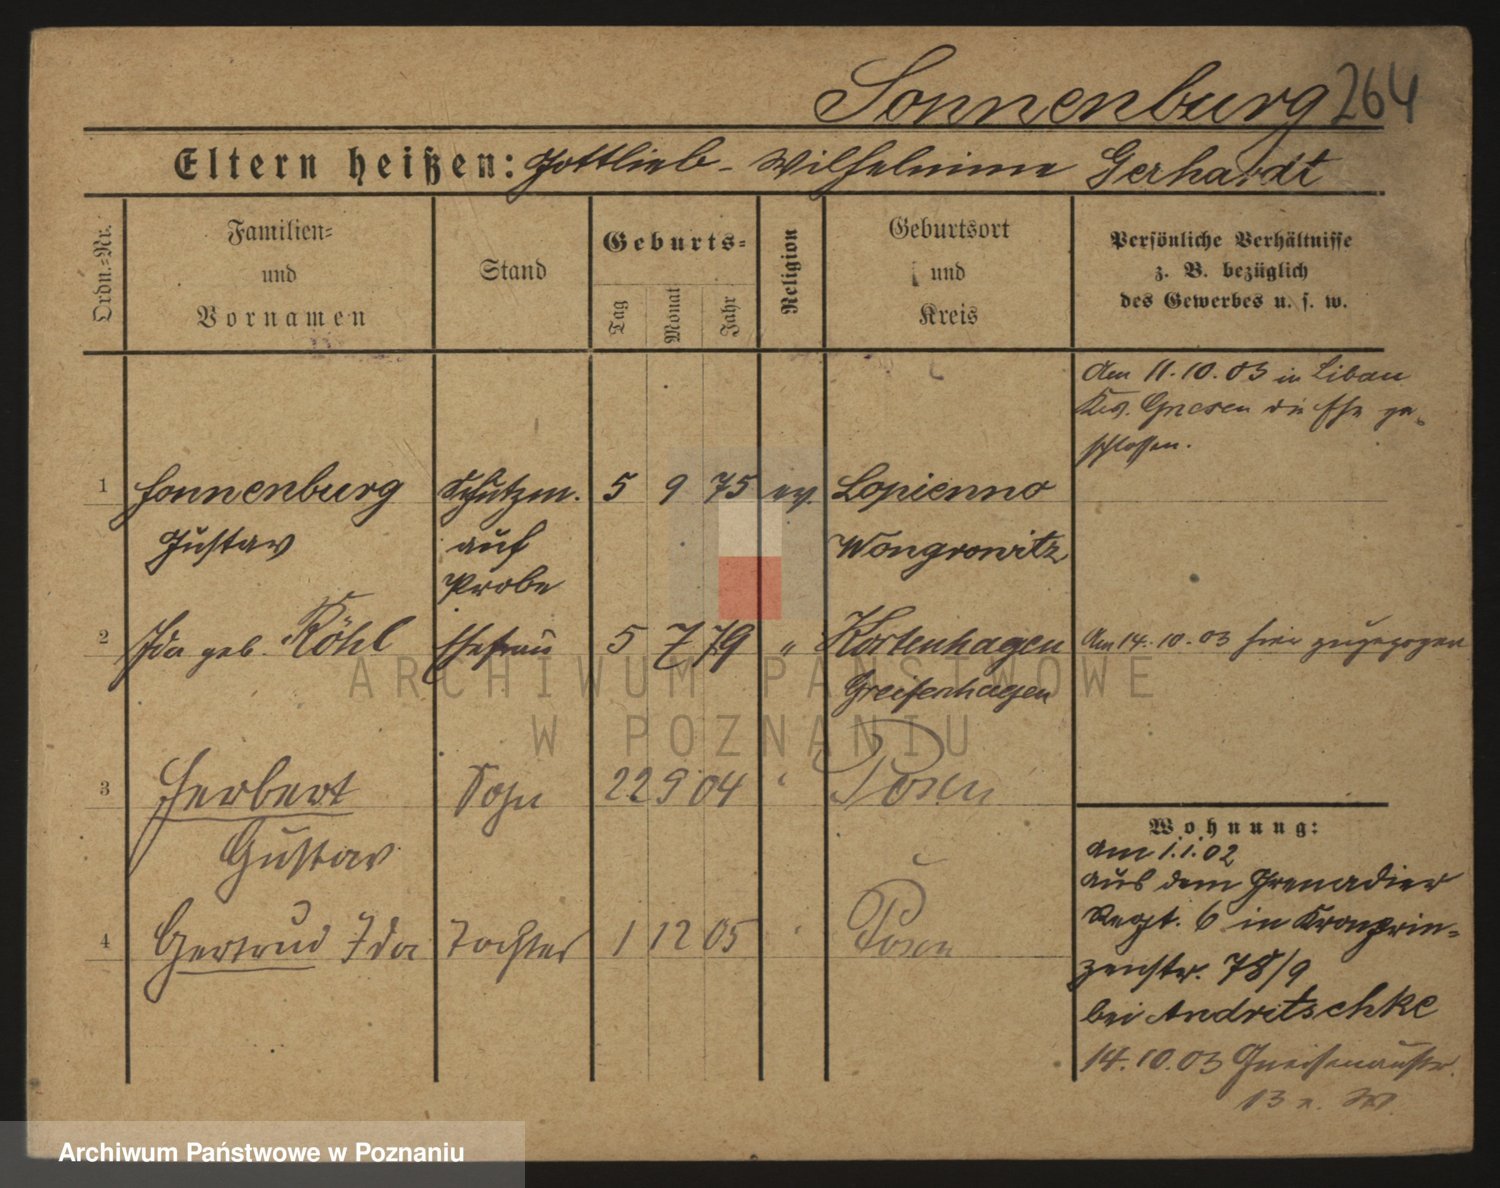 Sonnenburg 264
Eltern heißen: Gottlieb - Wilhelmine Gerhardt
Ordn.=Nr.
Familien=
und
Vornamen
Stand
Geburts=
Tag
Monat
Jahr
Religion
Geburtsort
und
Kreis
Persönliche Verhältnisse
z. B. bezüglich
des Gewerbes u. s. w.
Am 11.10.03 in Libau
Krs. Gnesen die Ehe ge-
schlossen.
1 Sonnenburg Schutzm. 5 9 75 ev. Lopienno
Gustav auf Wongrowitz
Probe
2 Ida geb. Köhl Ehefrau 5 7 79 " Kortenhagen Am 14.10.03 hier zugezogen
Greifenhagen
3 Herbert Sohn 22 9 04 " Posen
Gustav
4 Gertrud Ida Tochter 1 12 05 " Posen
Wohnung:
Am 1.1.02
aus dem Grenadier
Regt. 6 in Kronprin=
zenstr. 78/9
bei Andritschke
14.10.03 Gneisenaustr.
13 n. W.
ARCHIWUM PAŃSTWOWE
W POZNANIU
Archiwum Państwowe w Poznaniu